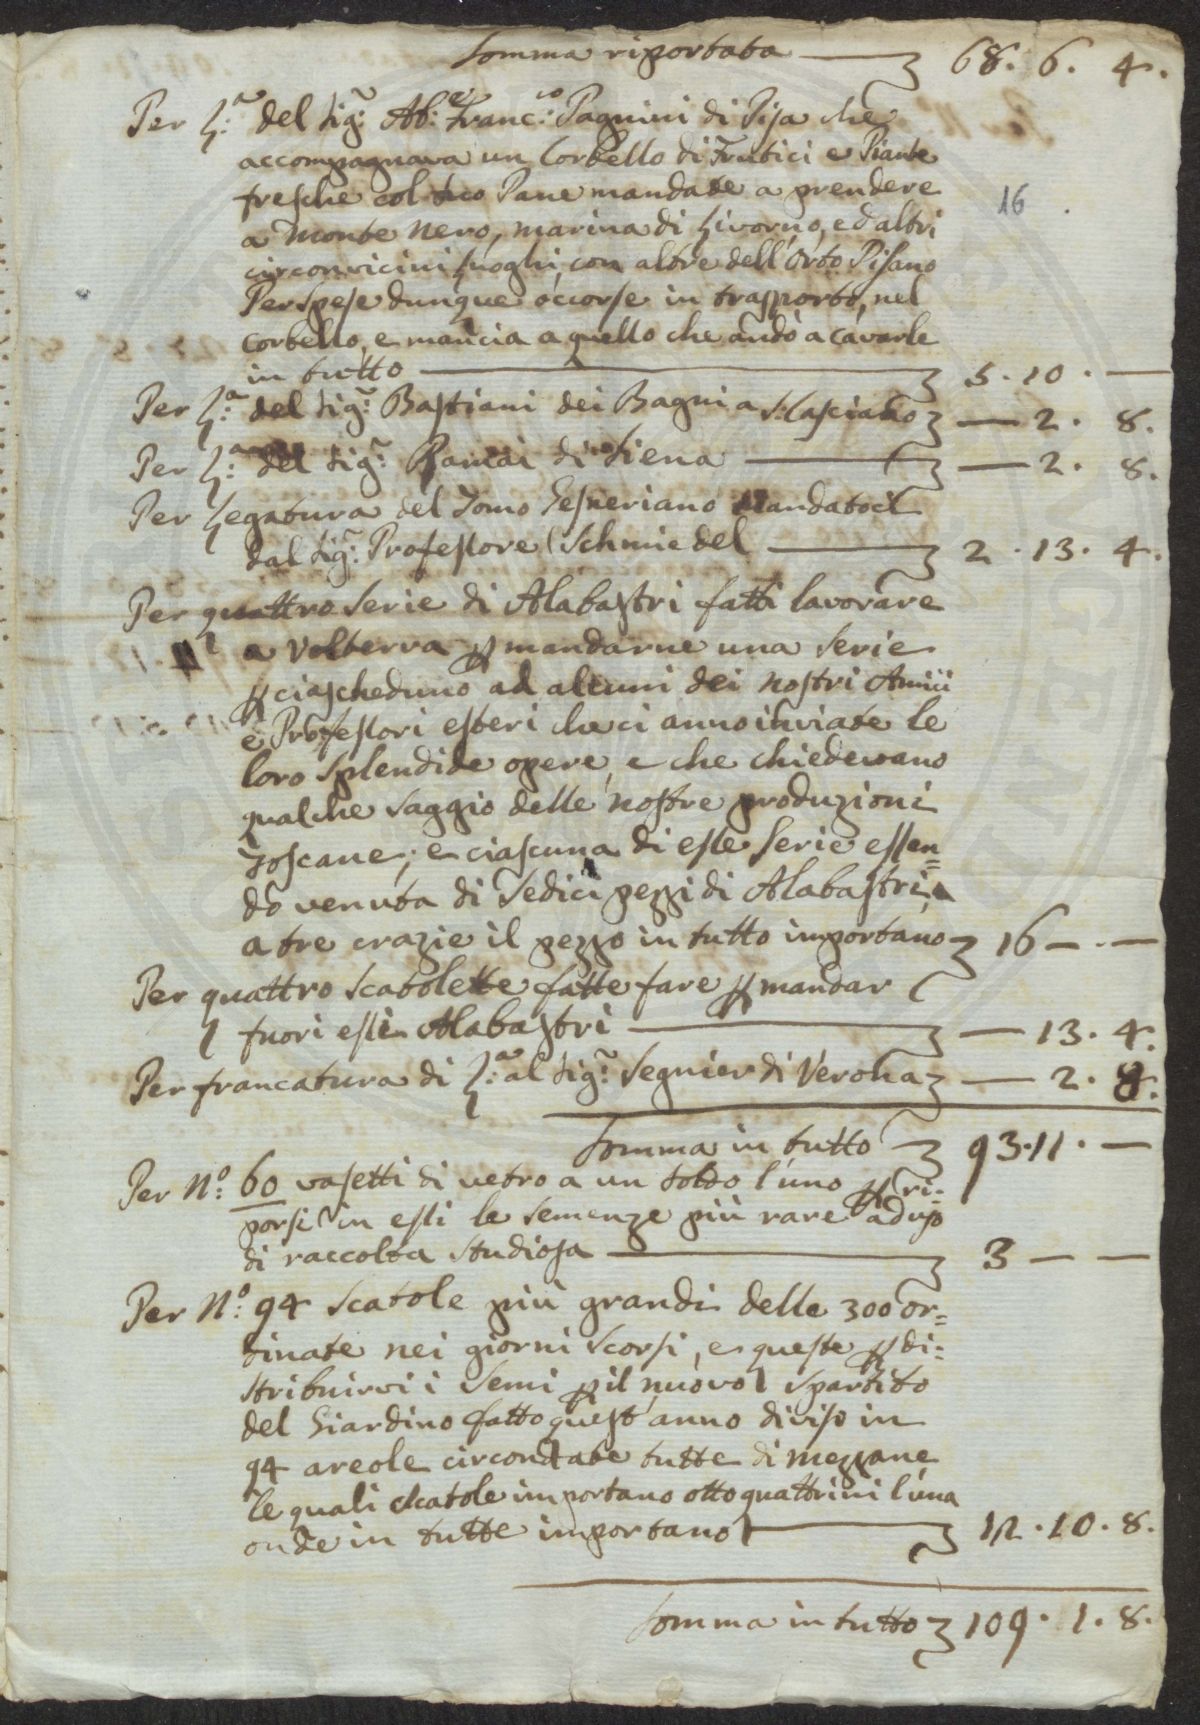 Somma riportata — 68. 6. 4.
Per L:a del Sig:r Ab:e Franc:co Pagnini di Pisa che
accompagnava un Corbello di Frutici e Piante
fresche col suo Pane mandate a prendere
16
a Monte Nero, Marina di Livorno, ed altri
circonvicini luoghi, con altre dell'Orto Pisano
Per Spese dunque occorse in trasporto, nel
Corbello, e mancia a quello che andò a cavarle
in tutto — 5. 10. —
Per L:a del Sig:r Bastiani dei Bagni a S: Casciano — 2. 8.
Per L:a del Sig:r di Siena — 2. 8.
Per Legatura del Tomo Gesneriano Mandatoci
dal Sig:r Professore Schmiedel — 2. 13. 4.
Per quattro Serie di Alabastri fatti lavorare
a Volterra p mandarne una Serie
p ciascheduno ad alcuni dei nostri Amici
e Professori esteri che ci anno inviate le
loro Splendide opere, e che chiedevano
qualche Saggio delle nostre produzioni
Toscane; e ciascuna di esse Serie essen=
do venuta di Sedici pezzi di Alabastri,
a tre crazie il pezzo in tutto importano 16 — . —
Per quattro Scatolette fatte fare p mandar
fuori essi Alabastri — 13. 4.
Per francatura di L:a al Sig:r Seguier di Verona — 2. 8.
Somma in tutto 93. 11. —
Per N:o 60 vasetti di vetro a un soldo l'uno p ri=
porsi in essi le Semenze più rare ad uso
di raccolta Studiosa — 3 — —
Per N:o 94 Scatole più grandi delle 300 or=
dinate nei giorni Scorsi, e queste p di=
stribuirvi i Semi p il nuovo Spartito
del Giardino fatto quest'anno diviso in
94 areole circondate tutte di mezzane
le quali Scatole importano otto quattrini l'una
onde in tutte importano — 12. 10. 8.
Somma in tutto 109. 1. 8.